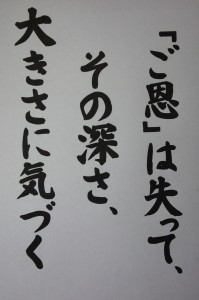 「ご恩」は失って、
その深さ、
大きさに気づく